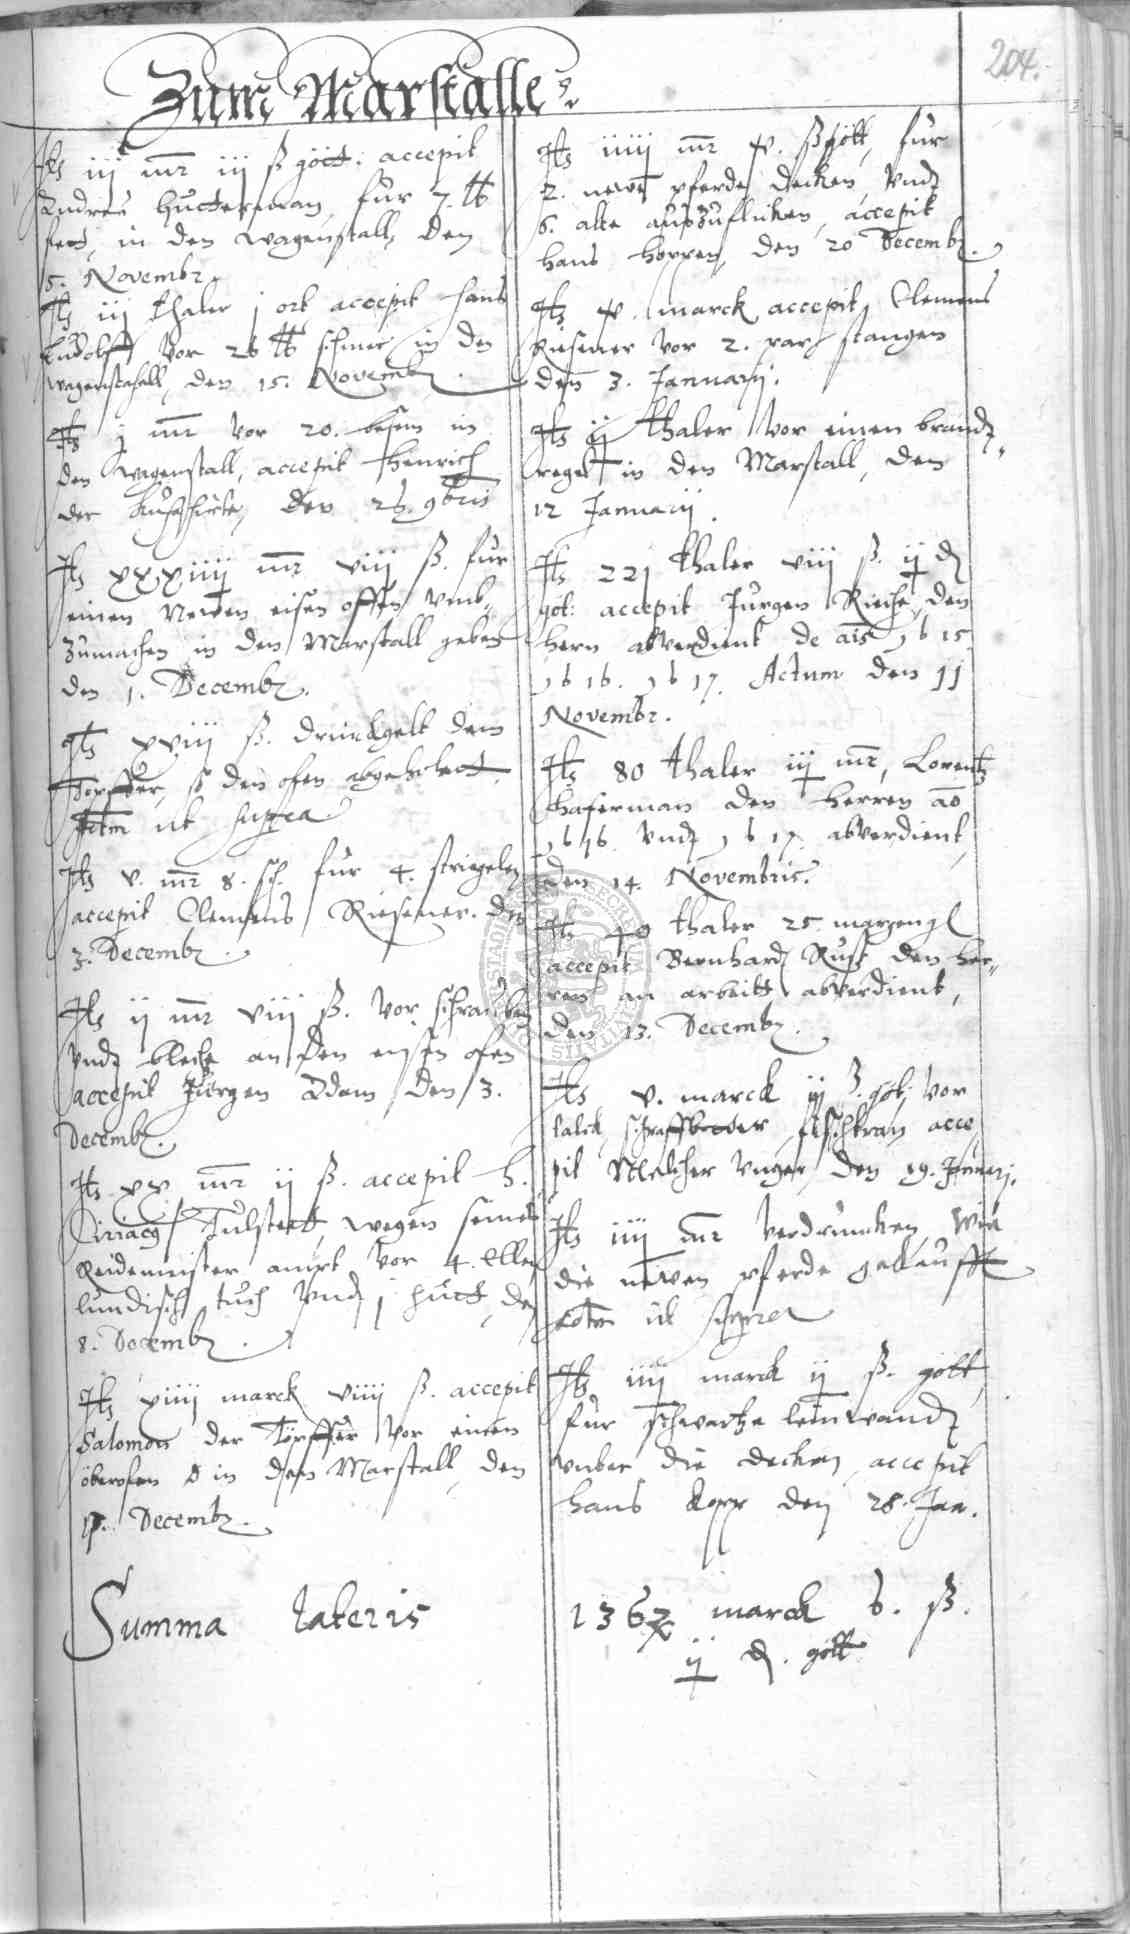 204.
Zum Marstalle
Itz iij mr iij ß gött: accepit
Andreas Hutterman, fur 7. ℔
fett, in den wagenstall, den
5. Novembr.
Itz iij thaler j ort accepit Hans
Ludolff vor 26 ℔ schmer in den
wagenstahll, den 15. Novemb.
Itz j mr vor 20. besem in
den Wagenstall, accepit Henrich
der Kuhhirte, den 26. 9bris
Itz xxxiiij mr viij ß. fur
einen Newen eisen offen umb-
zumachen in den Marstall geben
den 1. Decemb.
Itz xviij ß. drinckgelt dem
Törffer, so den ofen abgeholet
ut supra
Itz v. mr 8. sch. fur 4. striegelen
accepit Clemens Riesener. den
3. Decemb.
Itz ij mr viij ß. vor schrauben
vnd bleche an den eisen ofen
accepit Jürgen Adam den 3.
Decemb.
Itz xx mr ij ß. accepit H.
Ciriacus Tulstett, wegen seines
Reidemeister ampt vor 4. Ellen
lundisch tuch vnd j hutt, den
8. Decemb.
Itz xiiij marck viiij ß. accepit
Salomon der Törffer vor einen
öberofen in den Marstall, den
Decemb.
Itz iiiij mr ß gött, fur
2. newe pferde decken vnd
6. alte auszuflicken, accepit
Hans Horren, den 20 Decemb.
Itz marck accepit Clemens
Riesener vor 2. par stangen
den 3. Januarij.
Itz ij thaler vor einen brandt-
regel in den Marstall, den
12 Januarij.
Itz 221 thaler viij ß. ij d
göt: accepit Jurgen Rieche, den
hern abverdient de ais 1615
1616. 1617. Actum den 11
Novembr.
Itz 80 thaler iij mr, Lorentz
Haferman den Herren ao
1616 vnd 1617. abverdient,
den 14. Novembris.
Itz thaler 25 margengl
accepit Bernhard Russ den her-
ren an arbeitt abverdient,
den 13. Decemb.
Itz v. marck iij ß. göt, vor
talck, fischtran acce
pit Melcher Unger, den 19. Januarij.
Itz iiij mr verdruncken, wie
die newen pferde gekaufft
ut supra
Itz iiij marck ij ß. gött,
fur schwartze leinwand
vnber die decken, accepit
Hans Kopp den 28. Jan.
Summa lateris
1367 marck 6. ß.
ij d. gött